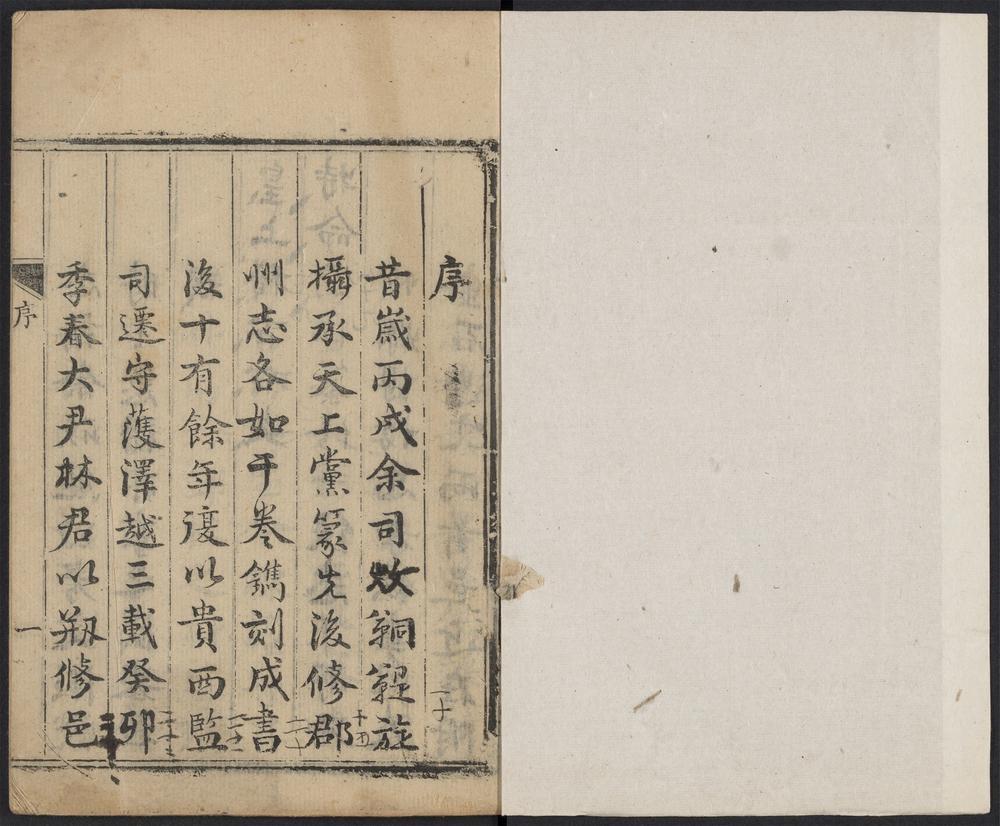 序
昔嵗丙戌余司牧銅鞮旋
攝承天上黨篆先後修郡
州志各如干卷鐫刻成書
後十有餘年復以貴西監
司遷守蒦澤越三載癸卯
季春大尹林君以剏修邑
序
一